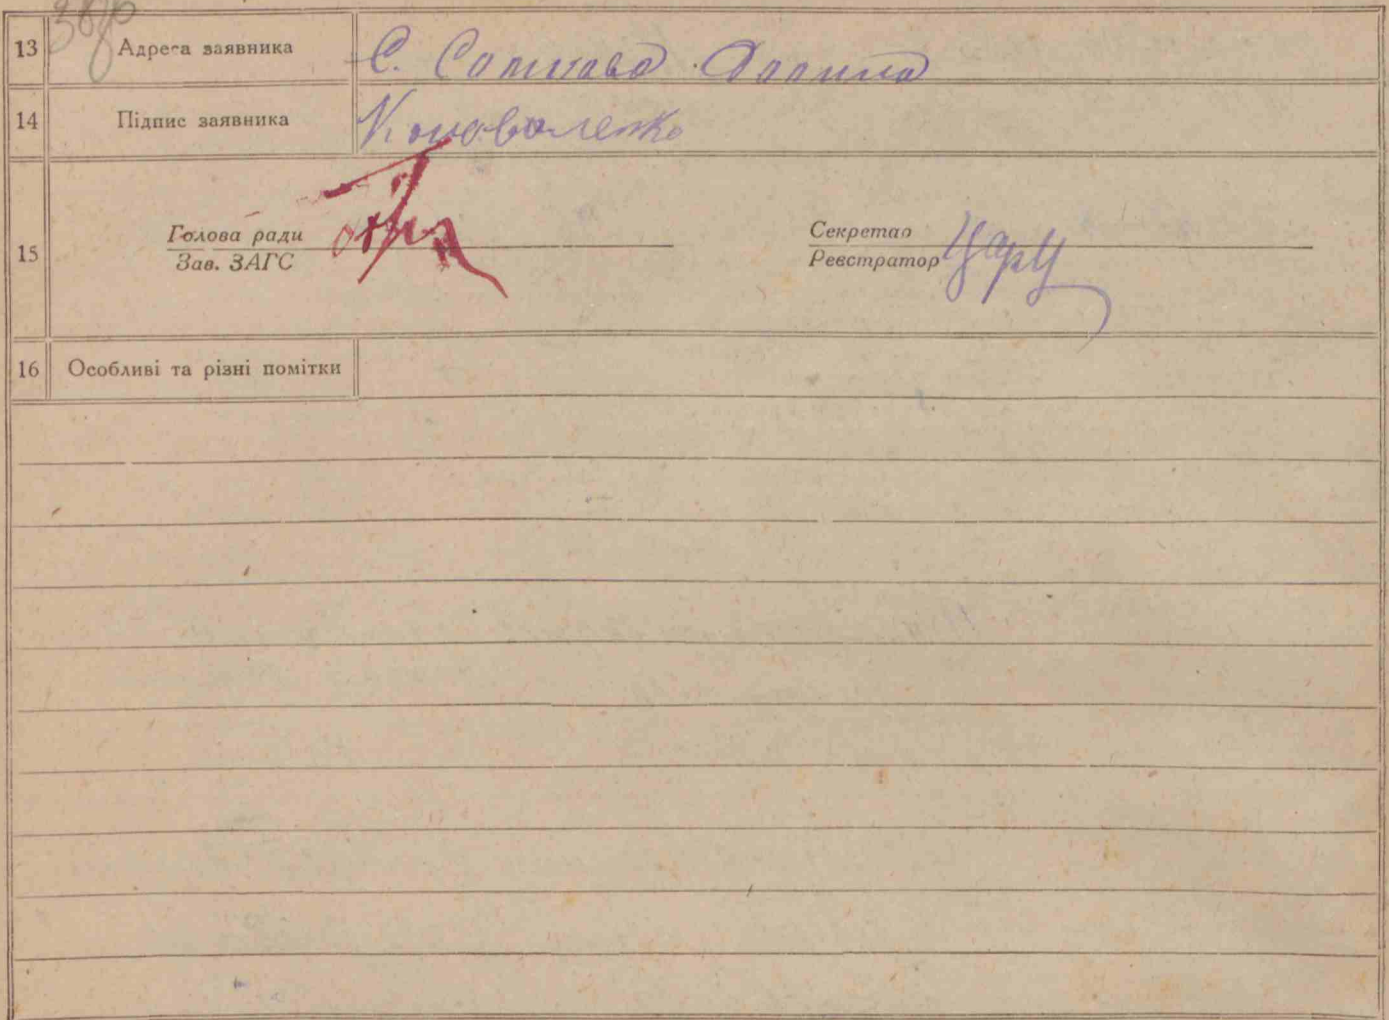 13 Адреса заявника С. Солнава Долина
14 Підпис заявника Коноваленко
15 Голова ради Секретар
Зав. ЗАГС Реєстратор
16 Особливі та різні помітки